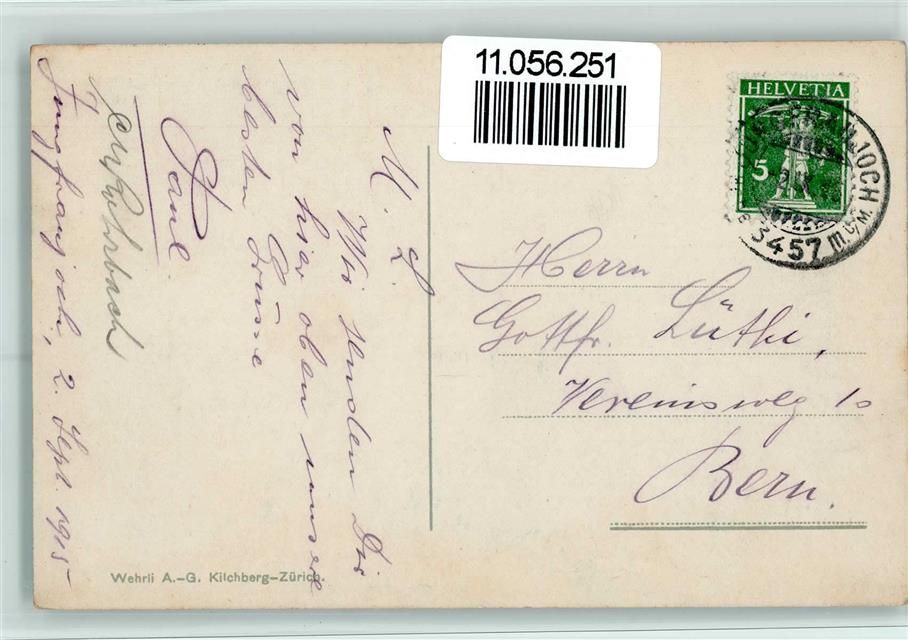 11.056.251
HELVETIA
5
JUNGFRAUJOCH
3457 m.ü.M.
Herrn
Gottfr. Lüthi,
Vereinsweg 10
Bern.
M. L.
Wir senden Dir
von hier oben unsere
besten Grüsse
Paul.
Jungfraujoch, 2. Sept. 1915
Wehrli A.-G. Kilchberg-Zürich.